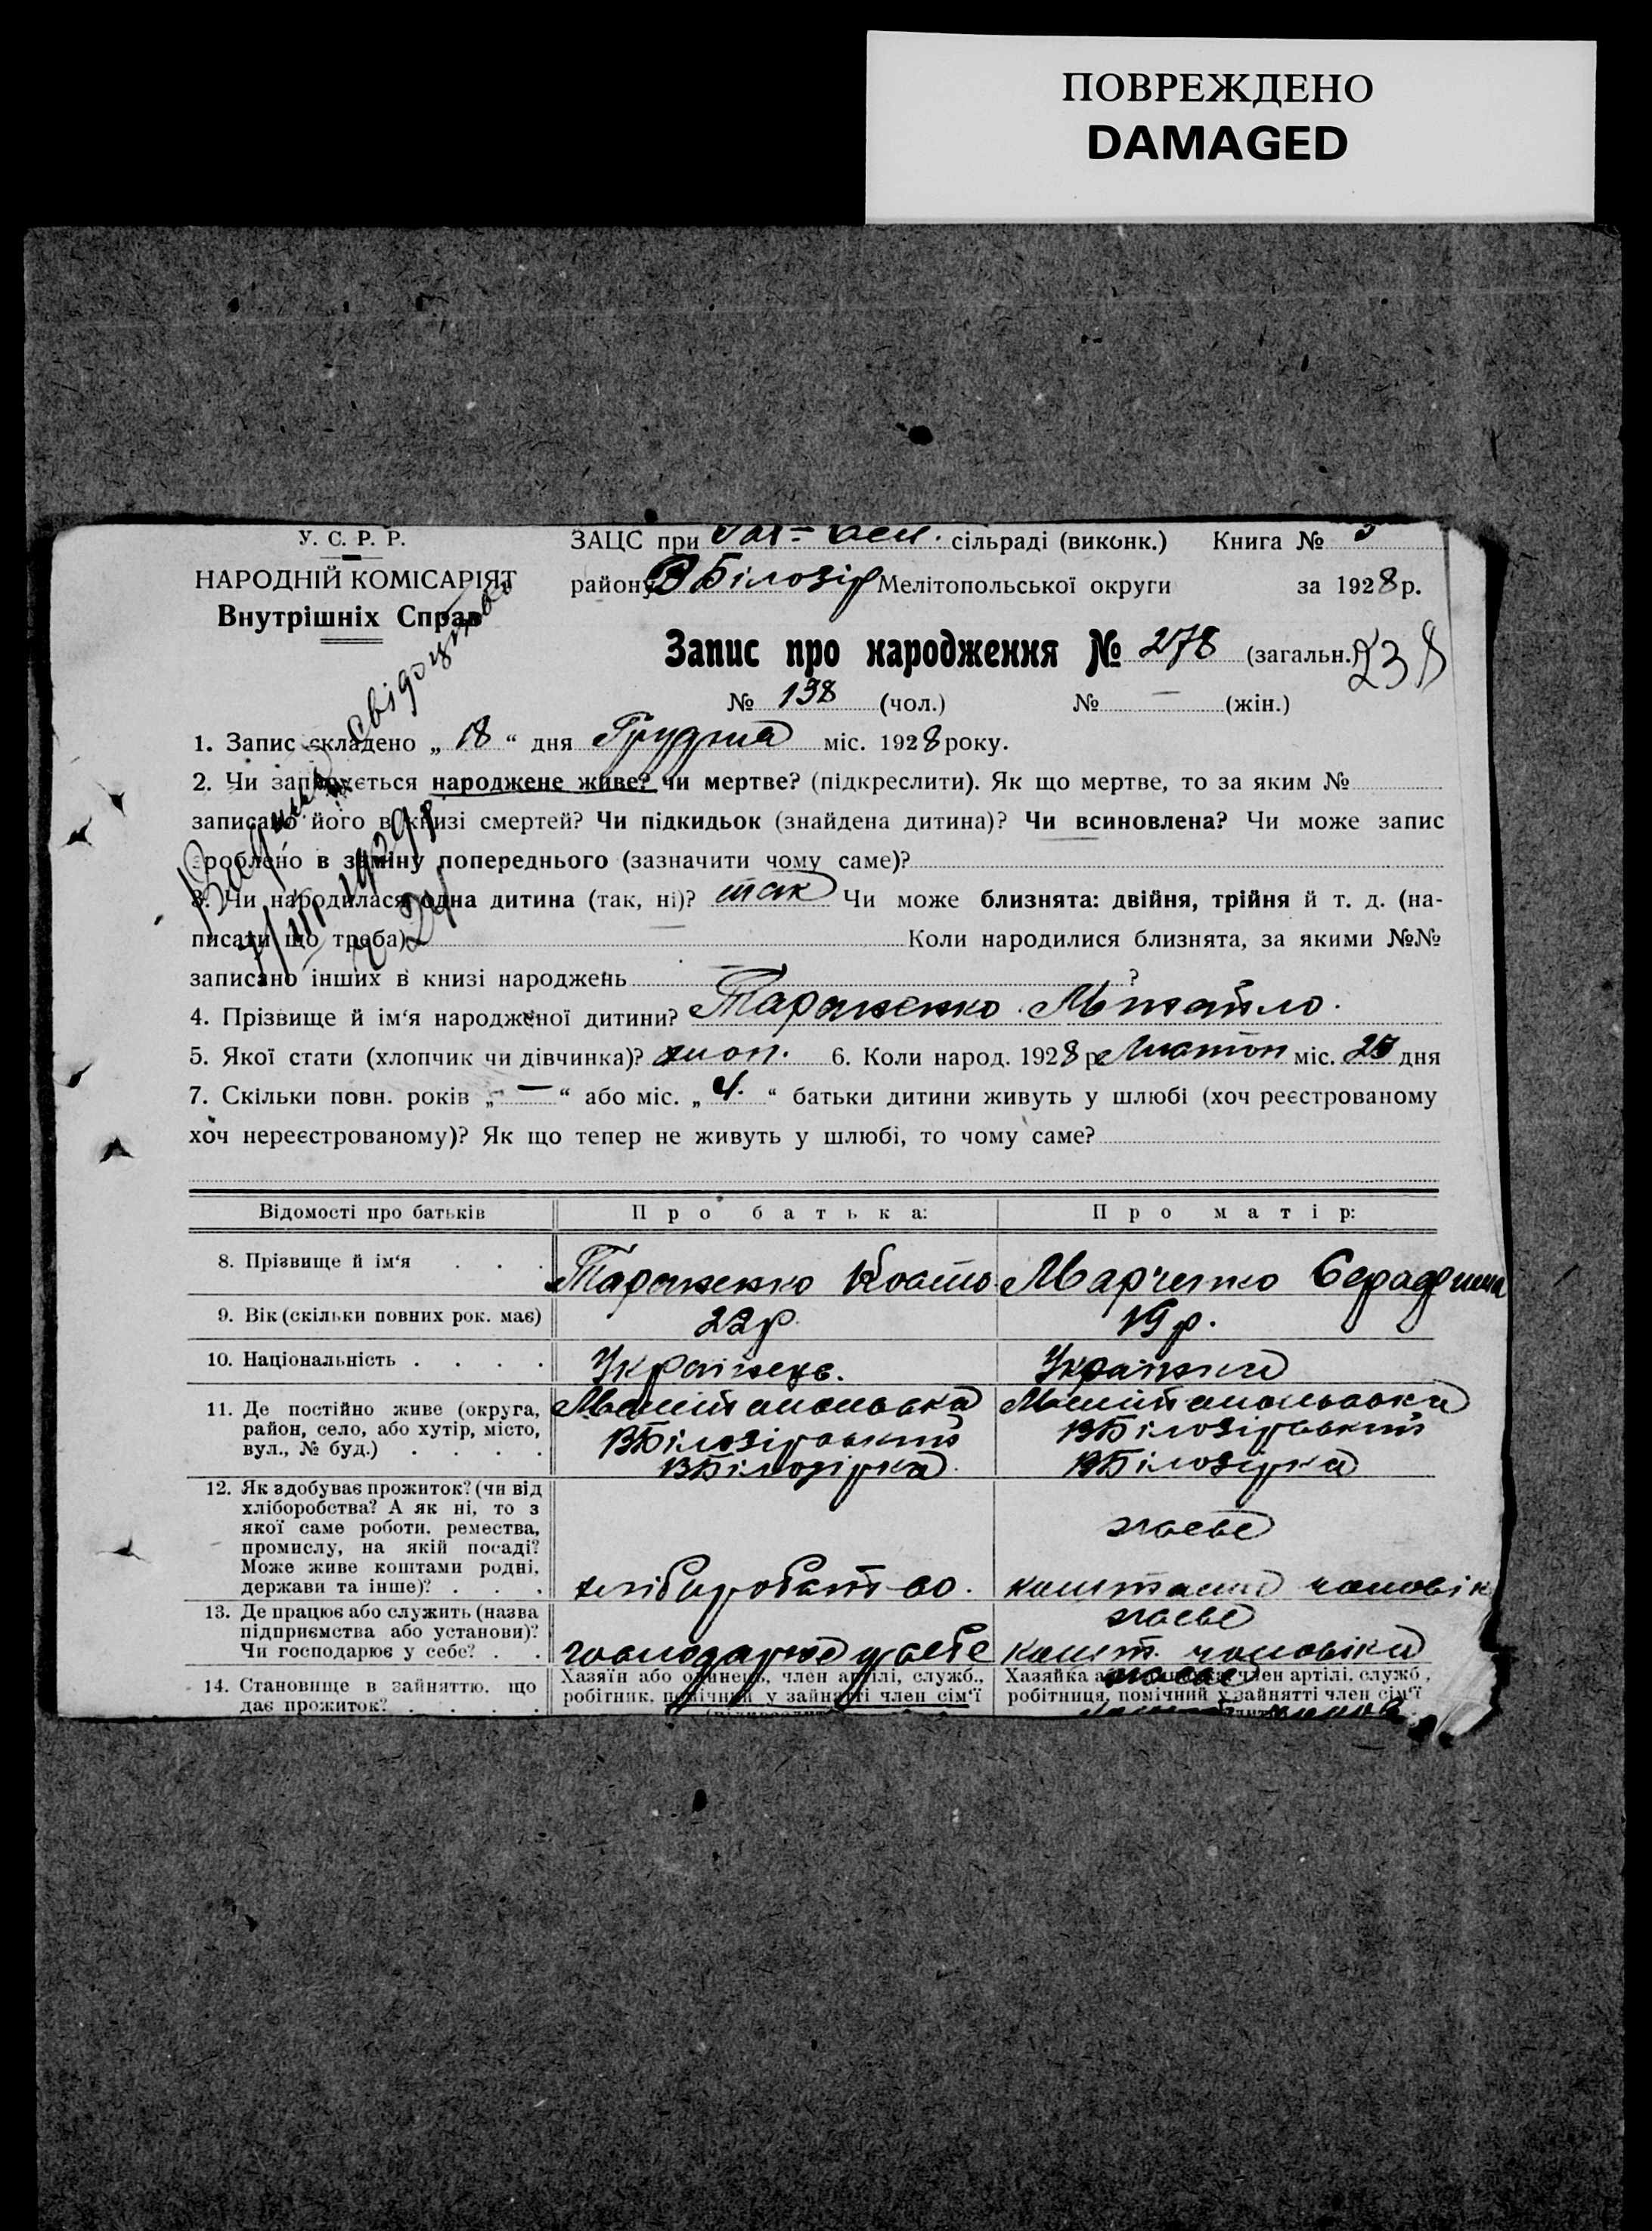 ПОВРЕЖДЕНО
DAMAGED
У. С. Р. Р.
НАРОДНІЙ КОМІСАРІЯТ
Внутрішніх Справ
ЗАЦС при сільраді (виконк.) Книга №
району В Білозір Мелітопольської округи за 1928 р.
Запис про народження № 278 (загальн.) 238
№ 138 (чол.) № — (жін.)
1. Запис складено „ 18 “ дня Грудня міс. 1928 року.
2. Чи записується народжене живе? чи мертве? (підкреслити). Як що мертве, то за яким №
записано його в книзі смертей? Чи підкидьок (знайдена дитина)? Чи всиновлена? Чи може запис
зроблено в заміну попереднього (зазначити чому саме)?
3. Чи народилася одна дитина (так, ні)? так Чи може близнята: двійня, трійня й т. д. (на-
писати що треба) Коли народилися близнята, за якими №№
записано інших в книзі народжень ?
4. Прізвище й ім‘я народженої дитини? Тараненко Михайло.
5. Якої стати (хлопчик чи дівчинка)? хлоп. 6. Коли народ. 1928 р. Листоп міс. дня
7. Скільки повн. років „ — “ або міс. „ 4. “ батьки дитини живуть у шлюбі (хоч реєстрованому
хоч нереєстрованому)? Як що тепер не живуть у шлюбі, то чому саме?
Відомості про батьків Про батька: Про матір:
8. Прізвище й ім‘я . . . Тараненко Кость Марченко Серафима
9. Вік (скільки повних рок. має) 22 р. 19 р.
10. Національність . . . . Українець. Українка
11. Де постійно живе (округа,
район, село, або хутір, місто,
вул., № буд.) . . . .
Мелітопольська
ВБілозірський
ВБілозірка
Мелітопольська
ВБілозірський
ВБілозірка
12. Як здобуває прожиток? (чи від
хліборобства? А як ні, то з
якої саме роботи. ремества,
промислу, на якій посаді?
Може живе коштами родні,
держави та інше)? . . .
хліборобство.
живе
коштами чоловік
13. Де працює або служить (назва
підприємства або установи)?
Чи господарює у себе? . .
господарює у себе
живе
кошт. чоловіка
14. Становище в зайняттю. що
дає прожиток? . . . .
Хазяїн або одинець, член артілі, служб.,
робітник, помічний у зайнятті член сім‘ї
Хазяйка член артілі, служб.,
робітниця, помічний у зайнятті член сім‘ї
свідоцтво
1929 р